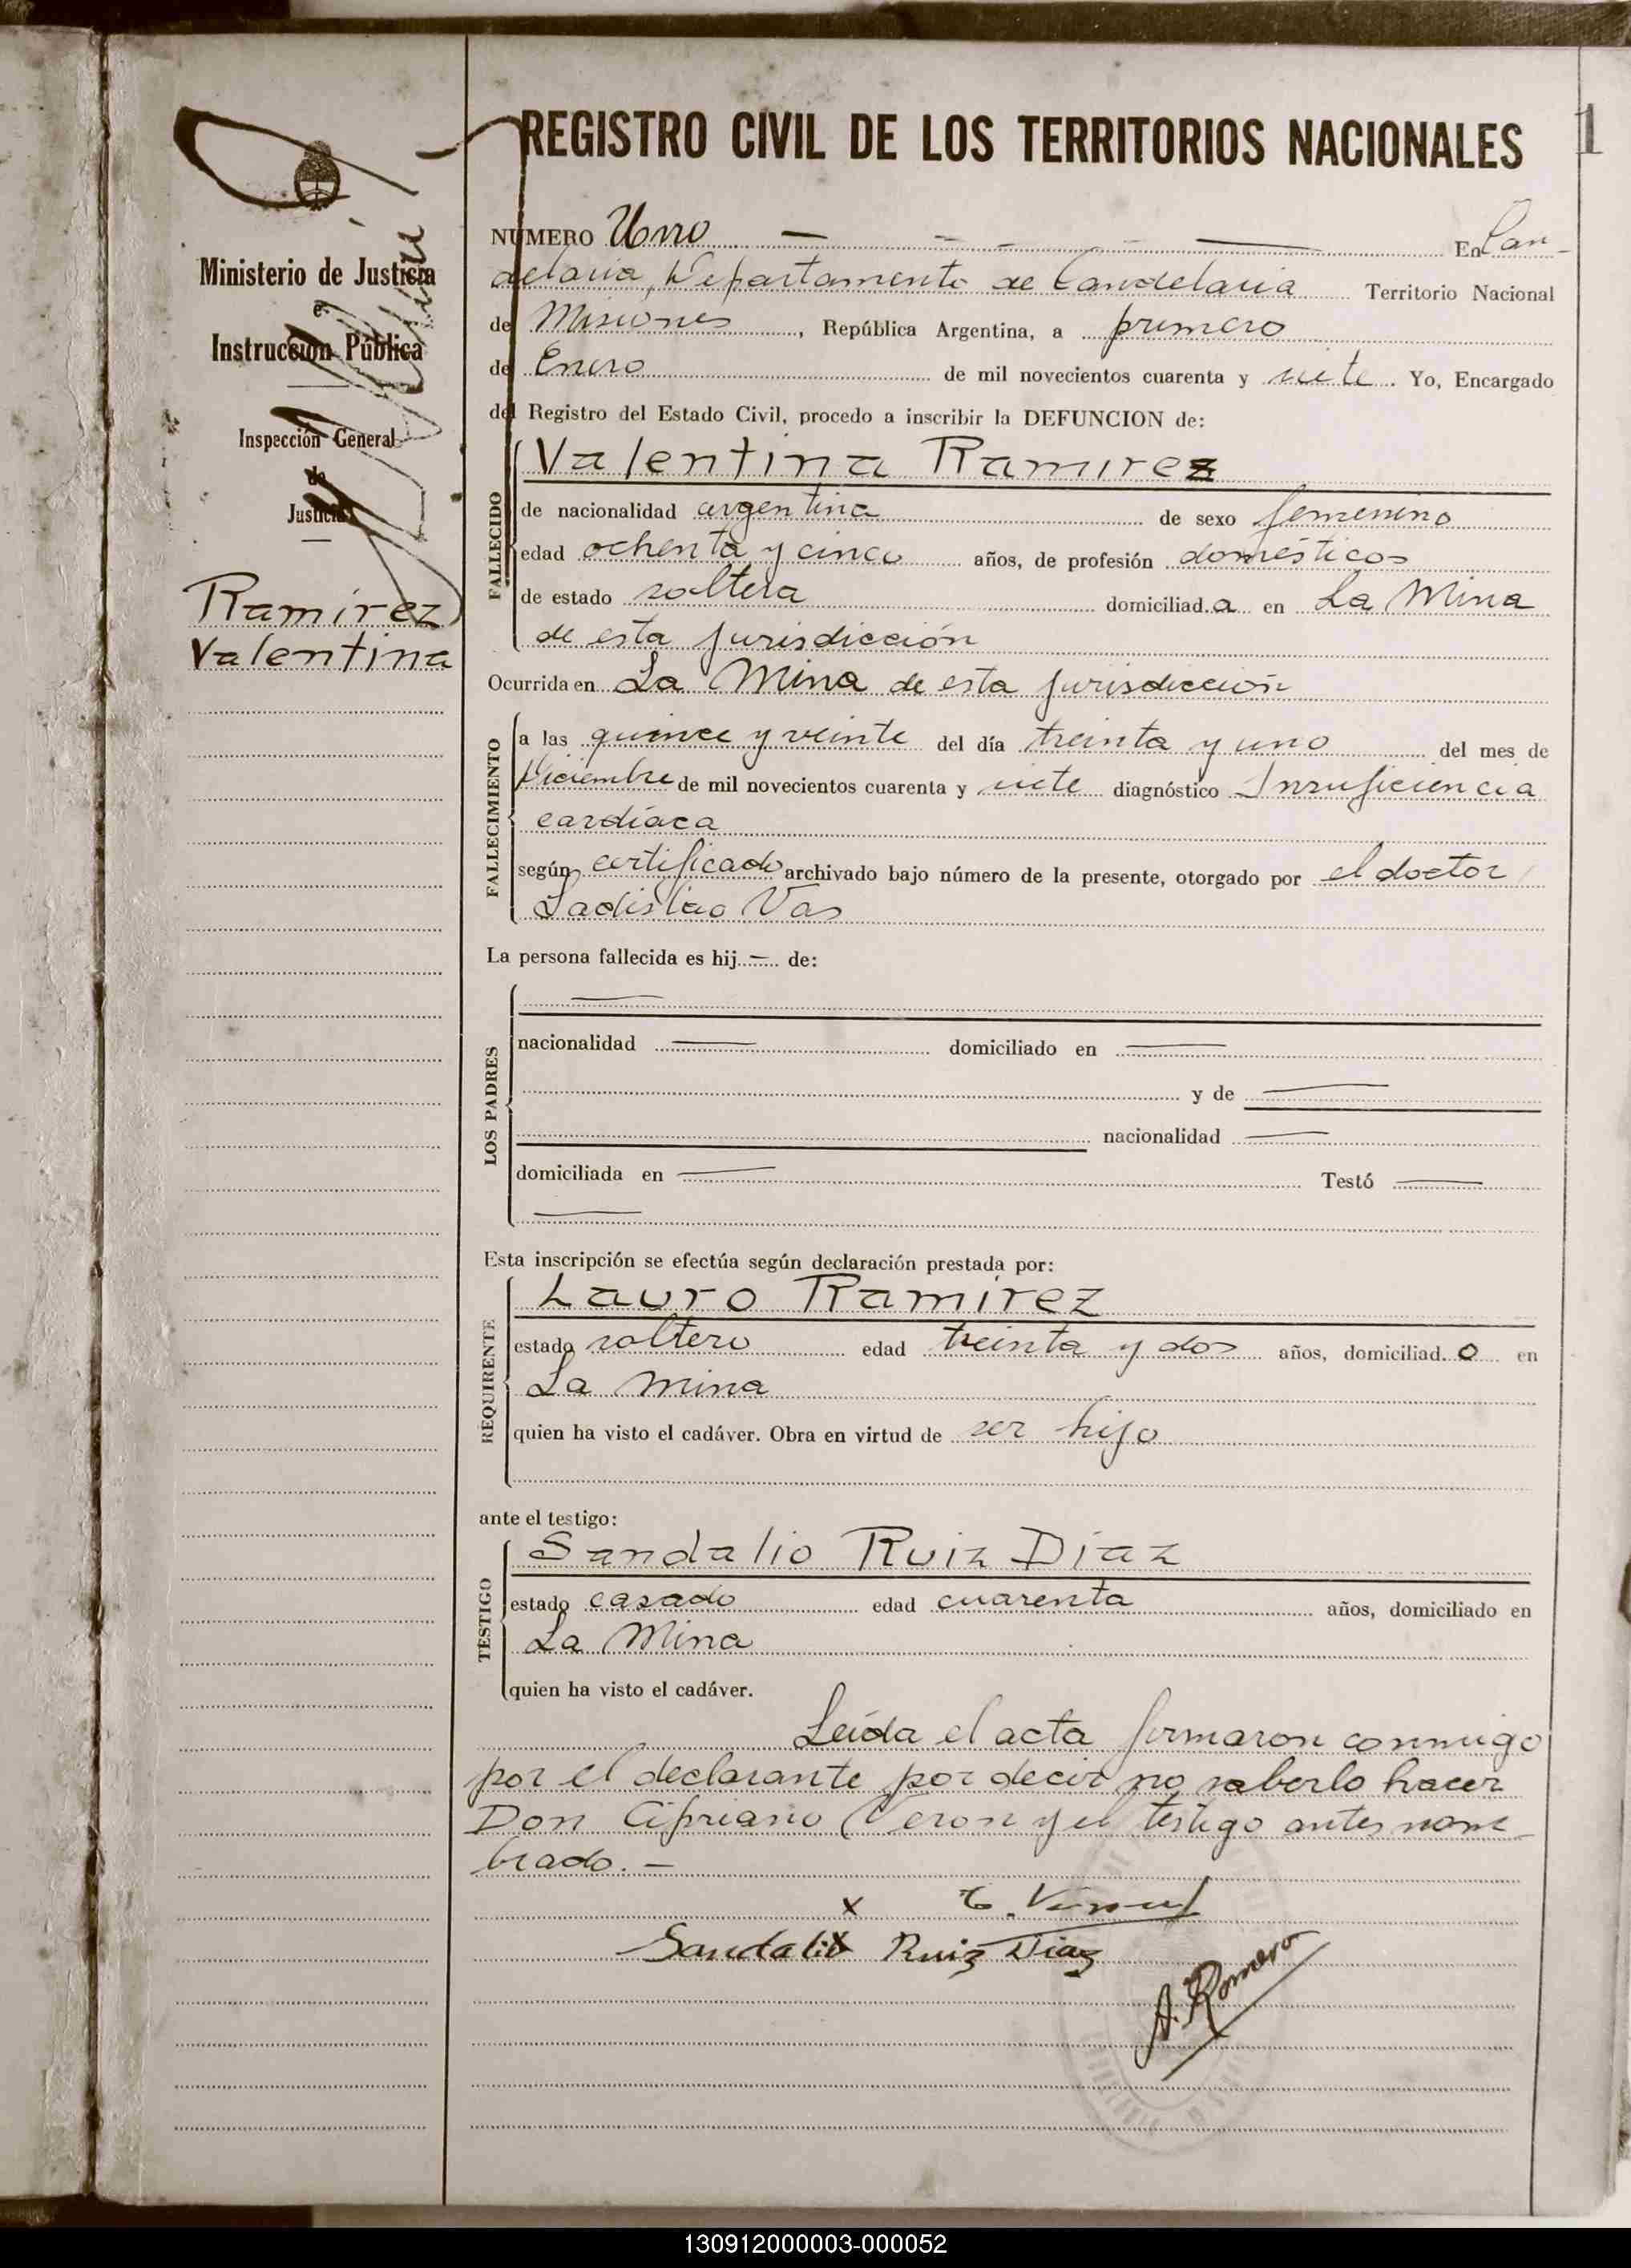 1
REGISTRO CIVIL DE LOS TERRITORIOS NACIONALES
Ministerio de Justicia
e
Instrucción Pública
Inspección General
de
Justicia
Ramírez
Valentina
NUMERO Uno — — — — — En Can-
delaria, Departamento de Candelaria Territorio Nacional
de Misiones, República Argentina, a primero
de Enero de mil novecientos cuarenta y siete. Yo, Encargado
del Registro del Estado Civil, procedo a inscribir la DEFUNCION de:
FALLECIDO
Valentina Ramirez
de nacionalidad argentina de sexo femenino
edad ochenta y cinco años, de profesión domésticos
de estado soltera domiciliad a en La Mina
de esta jurisdicción
Ocurrida en La Mina de esta jurisdicción
FALLECIMIENTO
a las quince y veinte del día treinta y uno del mes de
Diciembre de mil novecientos cuarenta y siete diagnóstico Insuficiencia
cardíaca
según certificado archivado bajo número de la presente, otorgado por el doctor
Ladislao Vas
La persona fallecida es hij — de:
LOS PADRES
—
nacionalidad — domiciliado en —
y de —
nacionalidad —
domiciliada en — Testó —
—
Esta inscripción se efectúa según declaración prestada por:
REQUIRENTE
Lauro Ramirez
estado soltero edad treinta y dos años, domiciliad o en
La Mina
quien ha visto el cadáver. Obra en virtud de ser hijo
ante el testigo:
TESTIGO
Sandalio Ruiz Díaz
estado casado edad cuarenta años, domiciliado en
La Mina
quien ha visto el cadáver.
Leída el acta firmaron conmigo
por el declarante por decir no saberlo hacer
Don Cipriano Veron y el testigo antes nom-
brado. —
x
Sandalio Ruiz Diaz
A. Romero
130912000003-000052